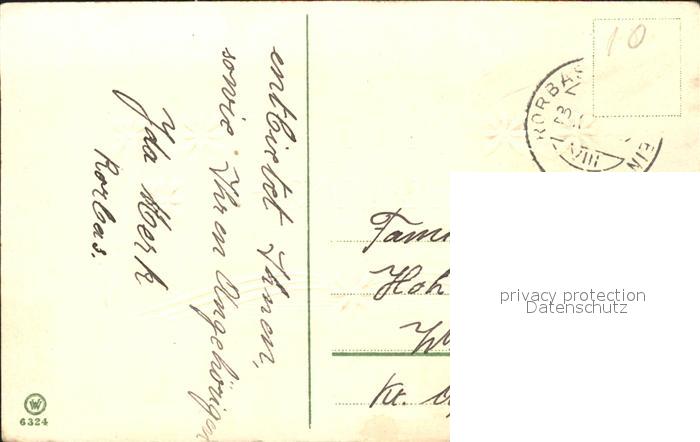 entbietet Ihnen,
sowie Ihren Angehörigen
Ida Merk
Rorbas.
10
RORBAS
VIII
EIN
Fam
Hoh
Kt.
privacy protection
Datenschutz
W
6324